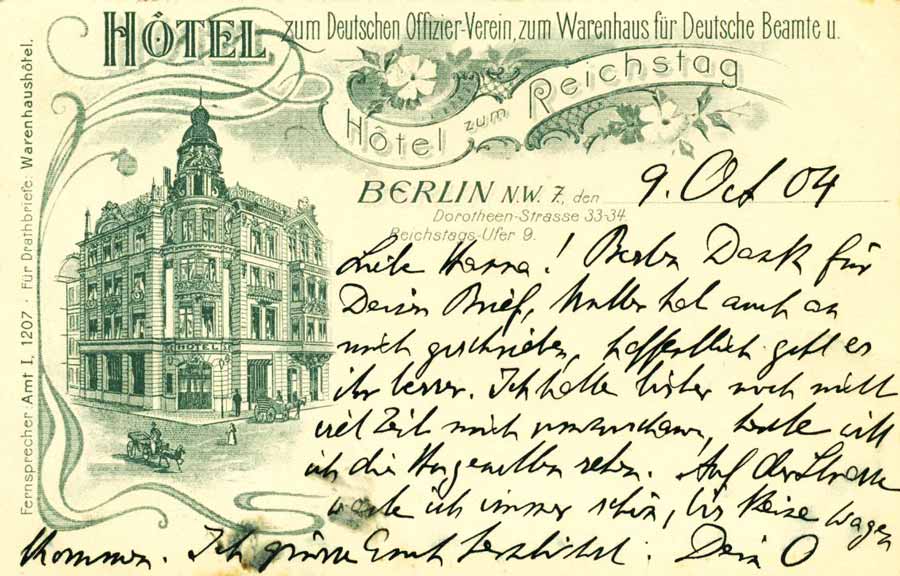 HÔTEL zum Deutschen Offizier-Verein, zum Warenhaus für Deutsche Beamte u.
Hôtel zum Reichstag
Fernsprecher: Amt I, 1207 · Für Drathbriefe: Warenhaushôtel.
BERLIN N.W. 7, den 9. Oct 04
Dorotheen-Strasse 33-34.
Reichstags-Ufer 9.
HOTEL
Liebe Hanna! Besten Dank für
Deinen Brief, Mutter hat auch an
mich geschrieben, hoffentlich geht es
ihr besser. Ich hatte bisher noch nicht
viel Zeit mich umzuschauen, heute will
ich die sehen. Auf der Strasse
warte ich immer schön, bis keine Wagen
kommen. Ich grüsse Euch herzlichst. Dein O